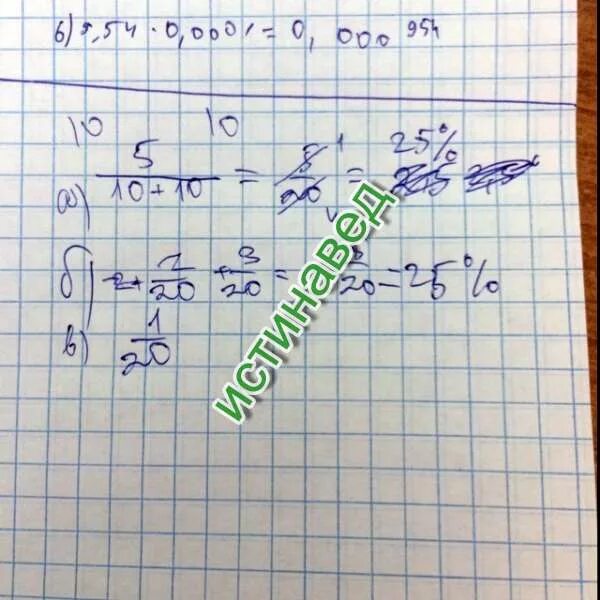 б) 9,54 · 0,0001 = 0,000954
10 10
а) 5/(10+10) = 5/20 = 25%
б) 2/20 + 3/20 = /20 = 25%
в) 1/20
истинавед